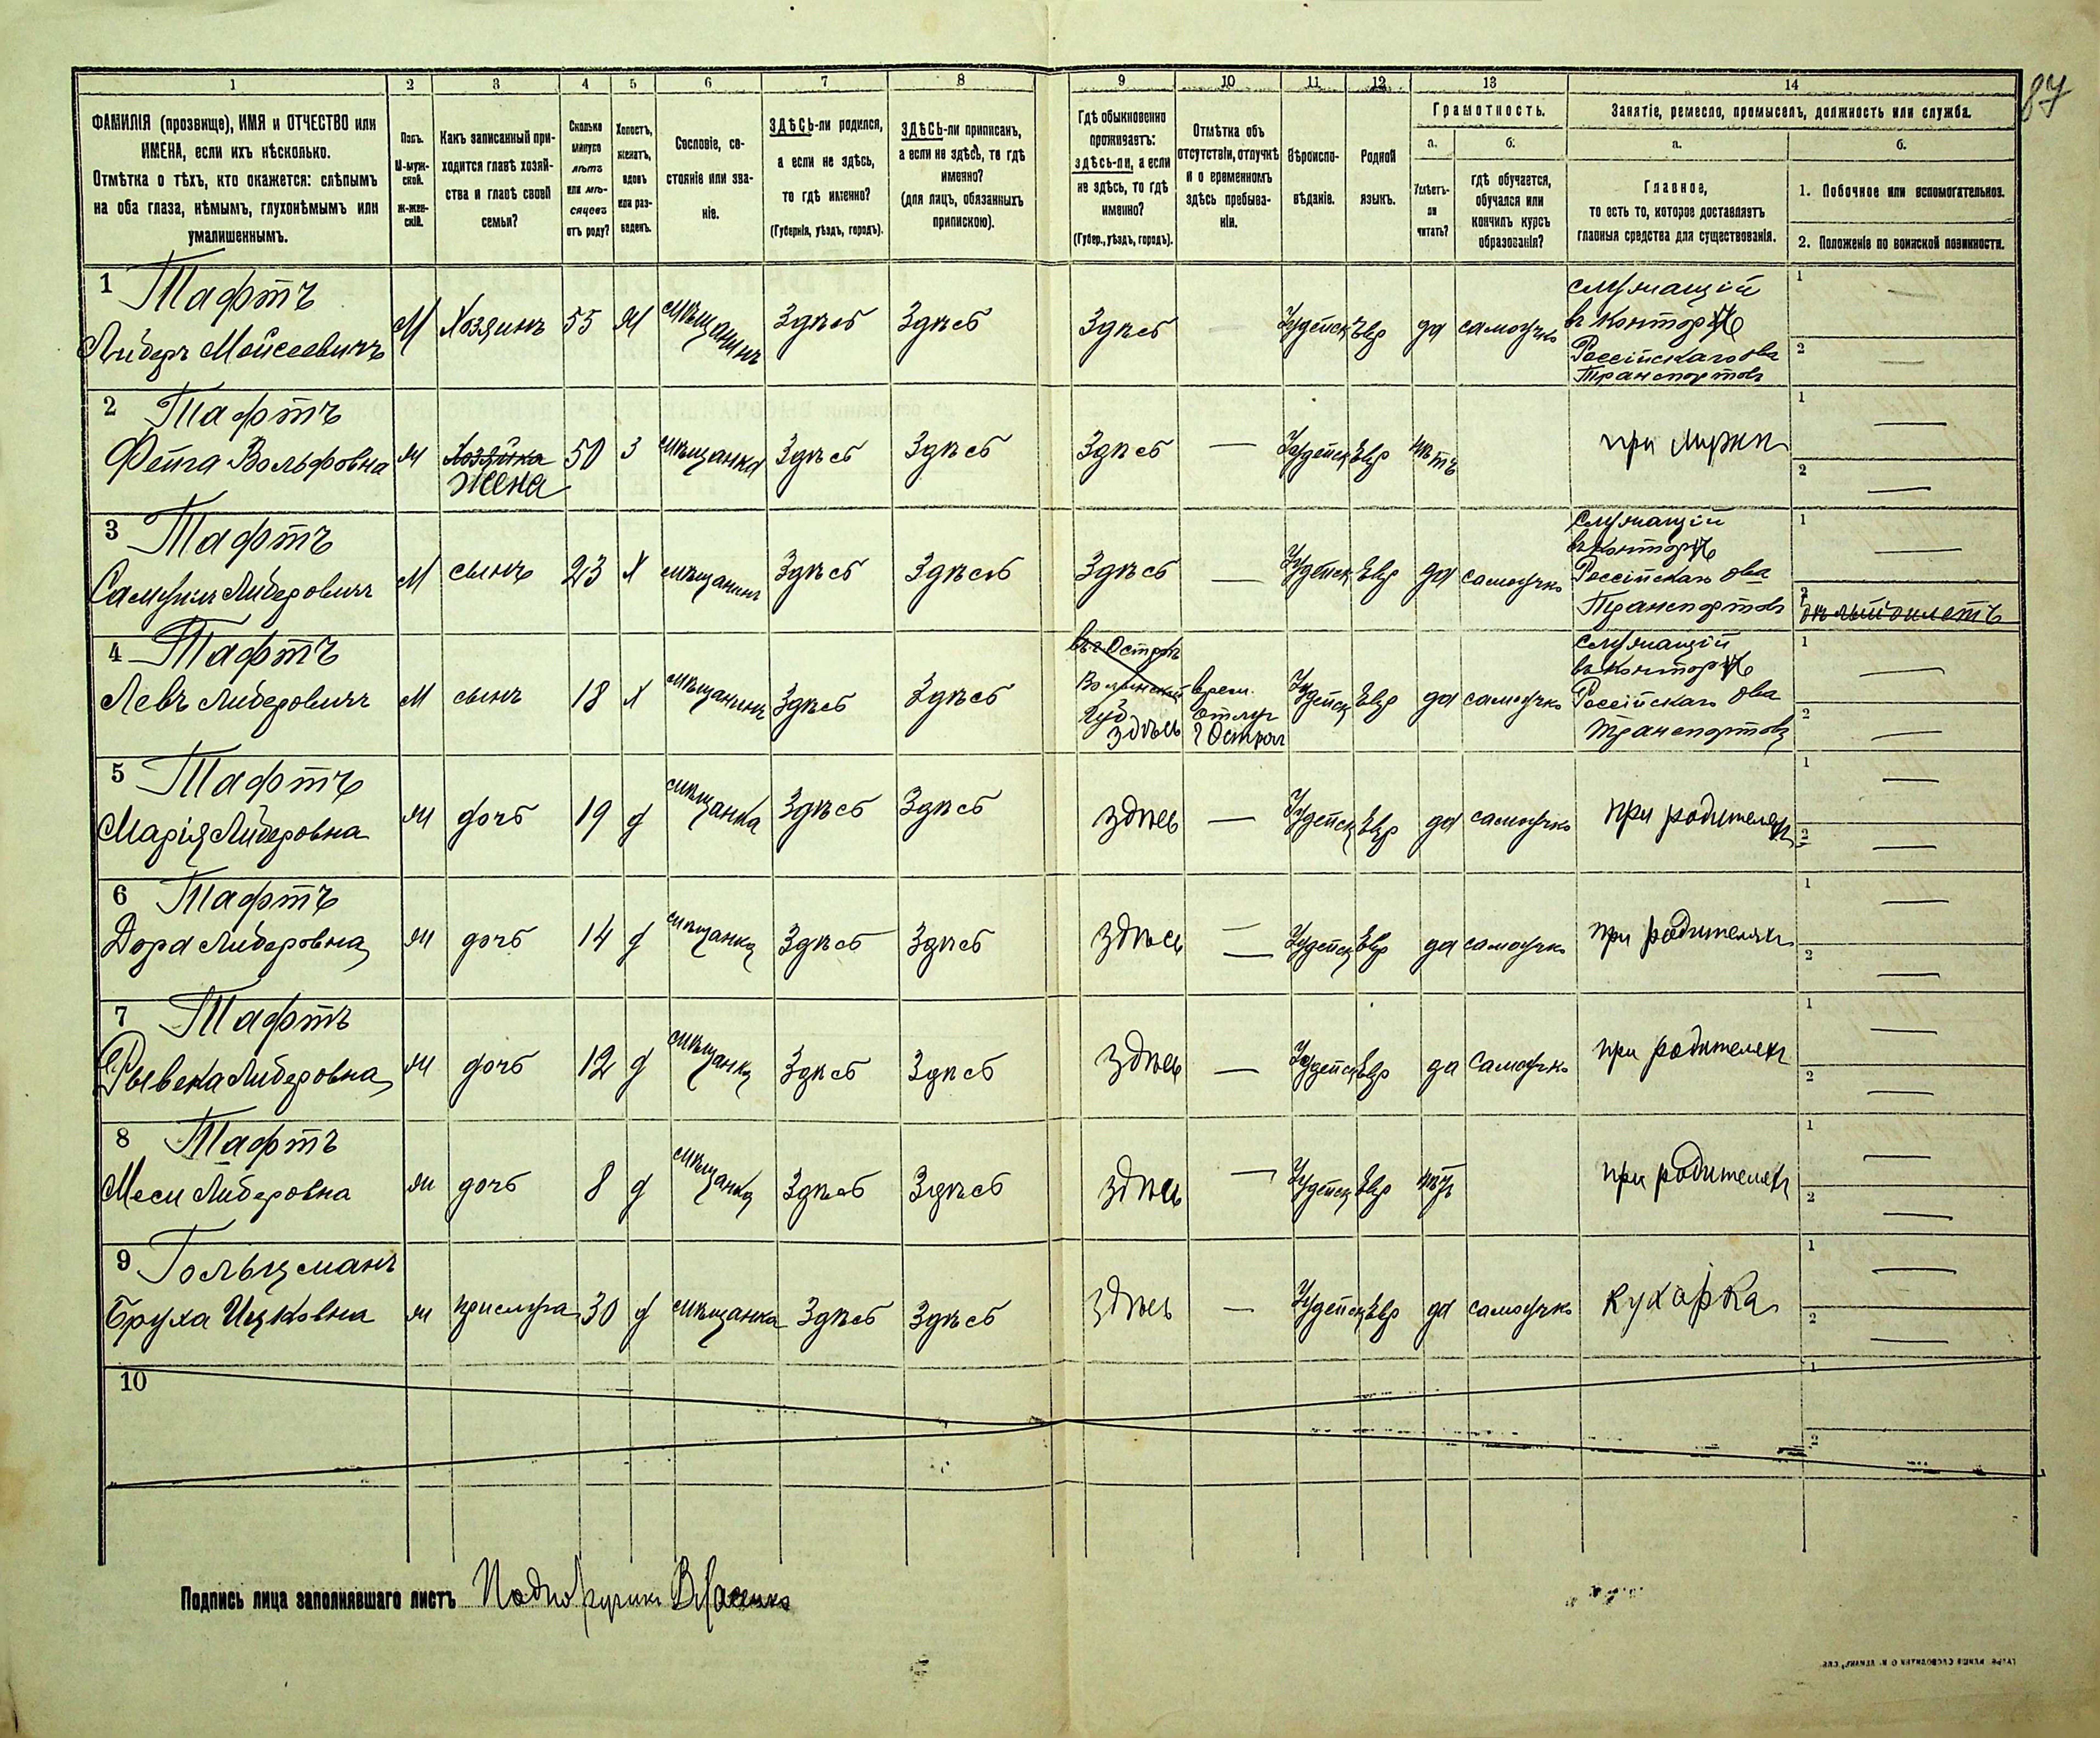 87
1 2 3 4 5 6 7 8 9 10 11 12 13 14
ФАМИЛІЯ (прозвище), ИМЯ и ОТЧЕСТВО или
ИМЕНА, если ихъ нѣсколько.
Отмѣтка о тѣхъ, кто окажется: слѣпымъ
на оба глаза, нѣмымъ, глухонѣмымъ или
умалишеннымъ.
Полъ.
М-муж-
ской.
Ж-жен-
скій.
Какъ записанный при-
ходится главѣ хозяй-
ства и главѣ своей
семьи?
Сколько
минуло
лѣтъ
или мѣ-
сяцевъ
отъ роду?
Холостъ,
женатъ,
вдовъ
или раз-
веденъ.
Сословіе, со-
стояніе или зва-
ніе.
ЗДѢСЬ-ли родился,
а если не здѣсь,
то гдѣ именно?
(Губернія, уѣздъ, городъ).
ЗДѢСЬ-ли приписанъ,
а если не здѣсь, то гдѣ
именно?
(для лицъ, обязанныхъ
припискою).
Гдѣ обыкновенно
проживаетъ:
здѣсь-ли, а если
не здѣсь, то гдѣ
именно?
(Губер., уѣздъ, городъ).
Отмѣтка объ
отсутствіи, отлучкѣ
и о временномъ
здѣсь пребыва-
ніи.
Вѣроиспо-
вѣданіе.
Родной
языкъ.
Грамотность.
а.
Умѣетъ-
ли
читать?
б.
гдѣ обучается,
обучался или
кончилъ курсъ
образованія?
Занятіе, ремесло, промыселъ, должность или служба.
а.
Главное,
то есть то, которое доставляетъ
главныя средства для существованія.
б.
1. Побочное или вспомогательное.
2. Положеніе по воинской повинности.
1 Тафтъ
Либеръ Мойсеевичъ М Хозяинъ 55 Ж мѣщанинъ Здѣсь Здѣсь Здѣсь — Іудейск Евр да самоучко
служащій
въ Конторѣ
Россійскаго ова
Транспортовъ
1 —
2 —
2 Тафтъ
Фейга Вольфовна ж Хозяйка 50 З мѣщанка Здѣсь Здѣсь Здѣсь — Іудейск Евр нѣтъ при мужѣ
Жена
1 —
2 —
3 Тафтъ
Самуилъ Либеровичъ М сынъ 23 Х мѣщанинъ Здѣсь Здѣсь Здѣсь — Іудейск Евр да самоучко
служащій
въ Конторѣ
Россійскаго ова
Транспортовъ
1 —
2 бѣлый билетъ
4 Тафтъ
Левъ Либеровичъ М сынъ 18 Х мѣщанинъ Здѣсь Здѣсь
въ г Острогѣ
Волынской
Губ
здѣсь
врем.
отлуч
г Острог
Іудейск Евр да самоучко
служащій
въ Конторѣ
Россійскаго ова
Транспортовъ
1 —
2 —
5 Тафтъ
Марія Либеровна ж дочь 19 д мѣщанка Здѣсь Здѣсь здѣсь — Іудейск Евр да самоучко при родителяхъ
1 —
2 —
6 Тафтъ
Дора Либеровна ж дочь 14 д мѣщанка Здѣсь Здѣсь здѣсь — Іудейск Евр да самоучко при родителяхъ
1 —
2 —
7 Тафтъ
Рывека Либеровна ж дочь 12 д мѣщанка Здѣсь Здѣсь здѣсь — Іудейск Евр да Самоучко при родителяхъ
1 —
2 —
8 Тафтъ
Меси Либеровна ж дочь 8 д мѣщанка Здѣсь Здѣсь здѣсь — Іудейск Евр нѣтъ при родителяхъ
1 —
2 —
9 Гольцманъ
Бруха Ицковна ж прислуга 30 д мѣщанка Здѣсь Здѣсь здѣсь — Іудейск Евр да самоучко кухарка
1 —
2 —
10
1
2
Подпись лица заполнявшаго листъ